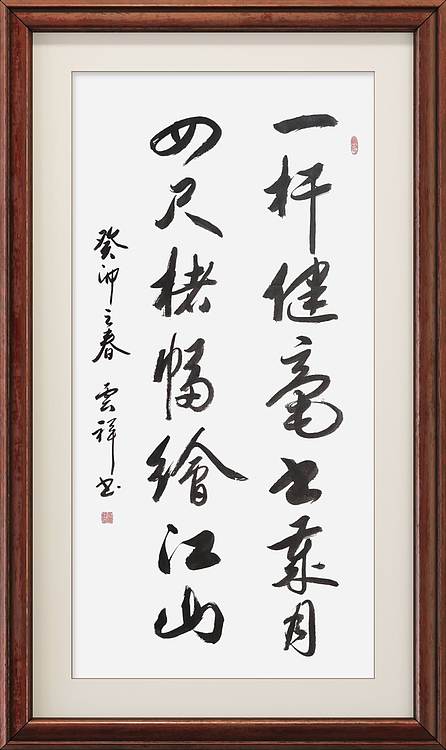 一杆健毫书岁月
四尺楮幅繪江山
癸卯之春 雲祥书